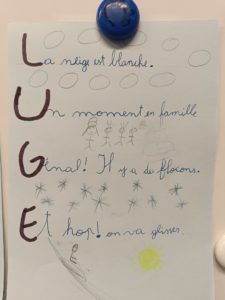 La neige est blanche.
Un moment en famille
Génial! Il y a de flocons.
Et hop! on va glisser.